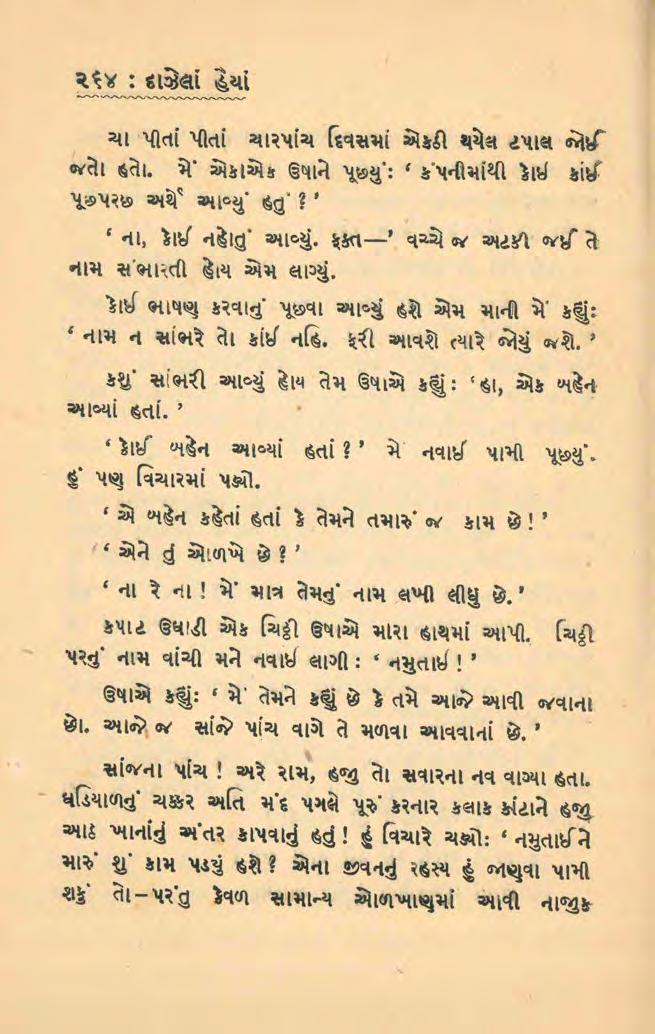 ૨૬૪ : દાઝેલાં હૈયાં
ચા પીતાં પીતાં ચારપાંચ દિવસમાં એકઠી થયેલ ટપાલ જોઈ
જતો હતો. મેં એકાએક ઉષાને પૂછ્યું: ‘ કંપનીમાંથી કોઈ કાંઈ
પૂછપરછ અર્થે આવ્યું હતું ? ’
‘ ના, કોઈ નહોતું આવ્યું. ફક્ત—’ વચ્ચે જ અટકી જઈ તે
નામ સંભારતી હોય એમ લાગ્યું.
કોઈ ભાષણ કરવાનું પૂછવા આવ્યું હશે એમ માની મેં કહ્યું:
‘ નામ ન સાંભરે તો કાંઈ નહિ. ફરી આવશે ત્યારે જોયું જશે. ’
કશું સાંભરી આવ્યું હોય તેમ ઉષાએ કહ્યું : ‘હા, એક બહેન
આવ્યાં હતાં. ’
‘ કોઈ બહેન આવ્યાં હતાં ? ’ મેં નવાઈ પામી પૂછ્યું.
હું પણ વિચારમાં પડ્યો.
‘ એ બહેન કહેતાં હતાં કે તેમને તમારું જ કામ છે ! ’
‘ એને તું ઓળખે છે ? ’
‘ ના રે ના ! મેં માત્ર તેમનું નામ લખી લીધુ છે. ’
કપાટ ઉઘાડી એક ચિઠ્ઠી ઉષાએ મારા હાથમાં આપી. ચિઠ્ઠી
પરનું નામ વાંચી મને નવાઈ લાગી : ‘ નમુતાઈ ! ’
ઉષાએ કહ્યું: ‘ મેં તેમને કહ્યું છે કે તમે આજે આવી જવાના
છો. આજે જ સાંજે પાંચ વાગે તે મળવા આવવાનાં છે. ’
સાંજના પાંચ ! અરે રામ, હજી તો સવારના નવ વાગ્યા હતા.
ઘડિયાળનું ચક્કર અતિ મંદ પગલે પૂરું કરનાર કલાક કાંટાને હજી
આઠ ખાનાંનું અંતર કાપવાનું હતું ! હું વિચારે ચઢ્યો: ‘ નમુતાઈને
મારું શું કામ પડયું હશે ? એના જીવનનું રહસ્ય હું જાણવા પામી
શકું તો—પરંતુ કેવળ સામાન્ય ઓળખાણમાં આવી નાજુક